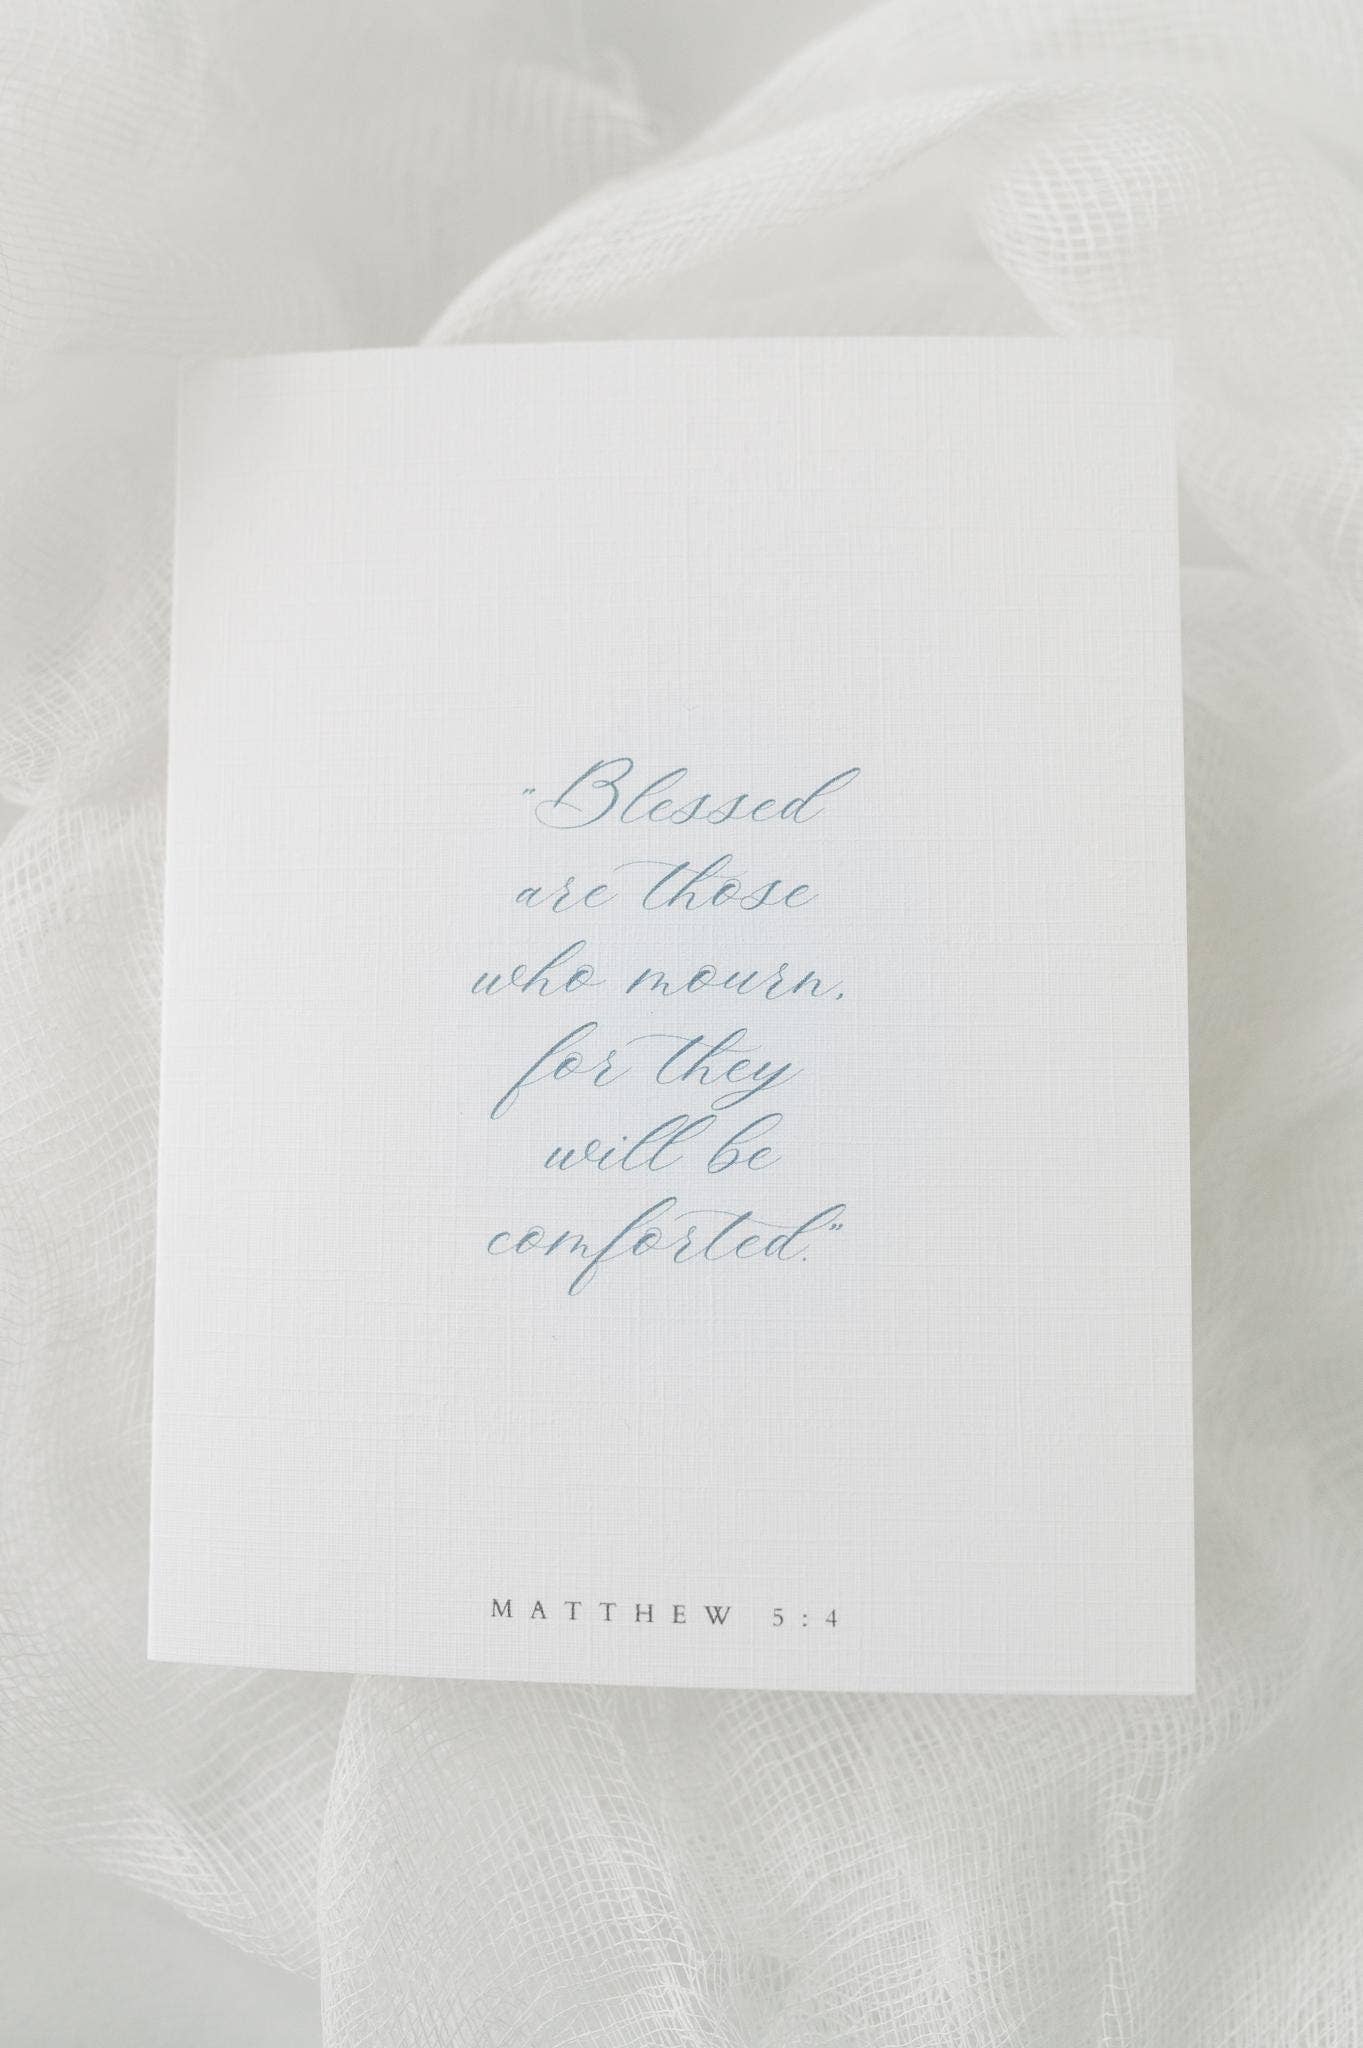 "Blessed
are those
who mourn,
for they
will be
comforted."
MATTHEW 5:4